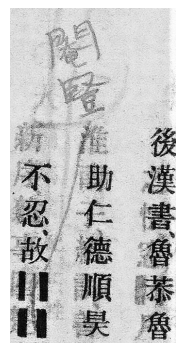 後漢書、魯恭魯
助仁德順昊
不忍、故〓〓
閹豎